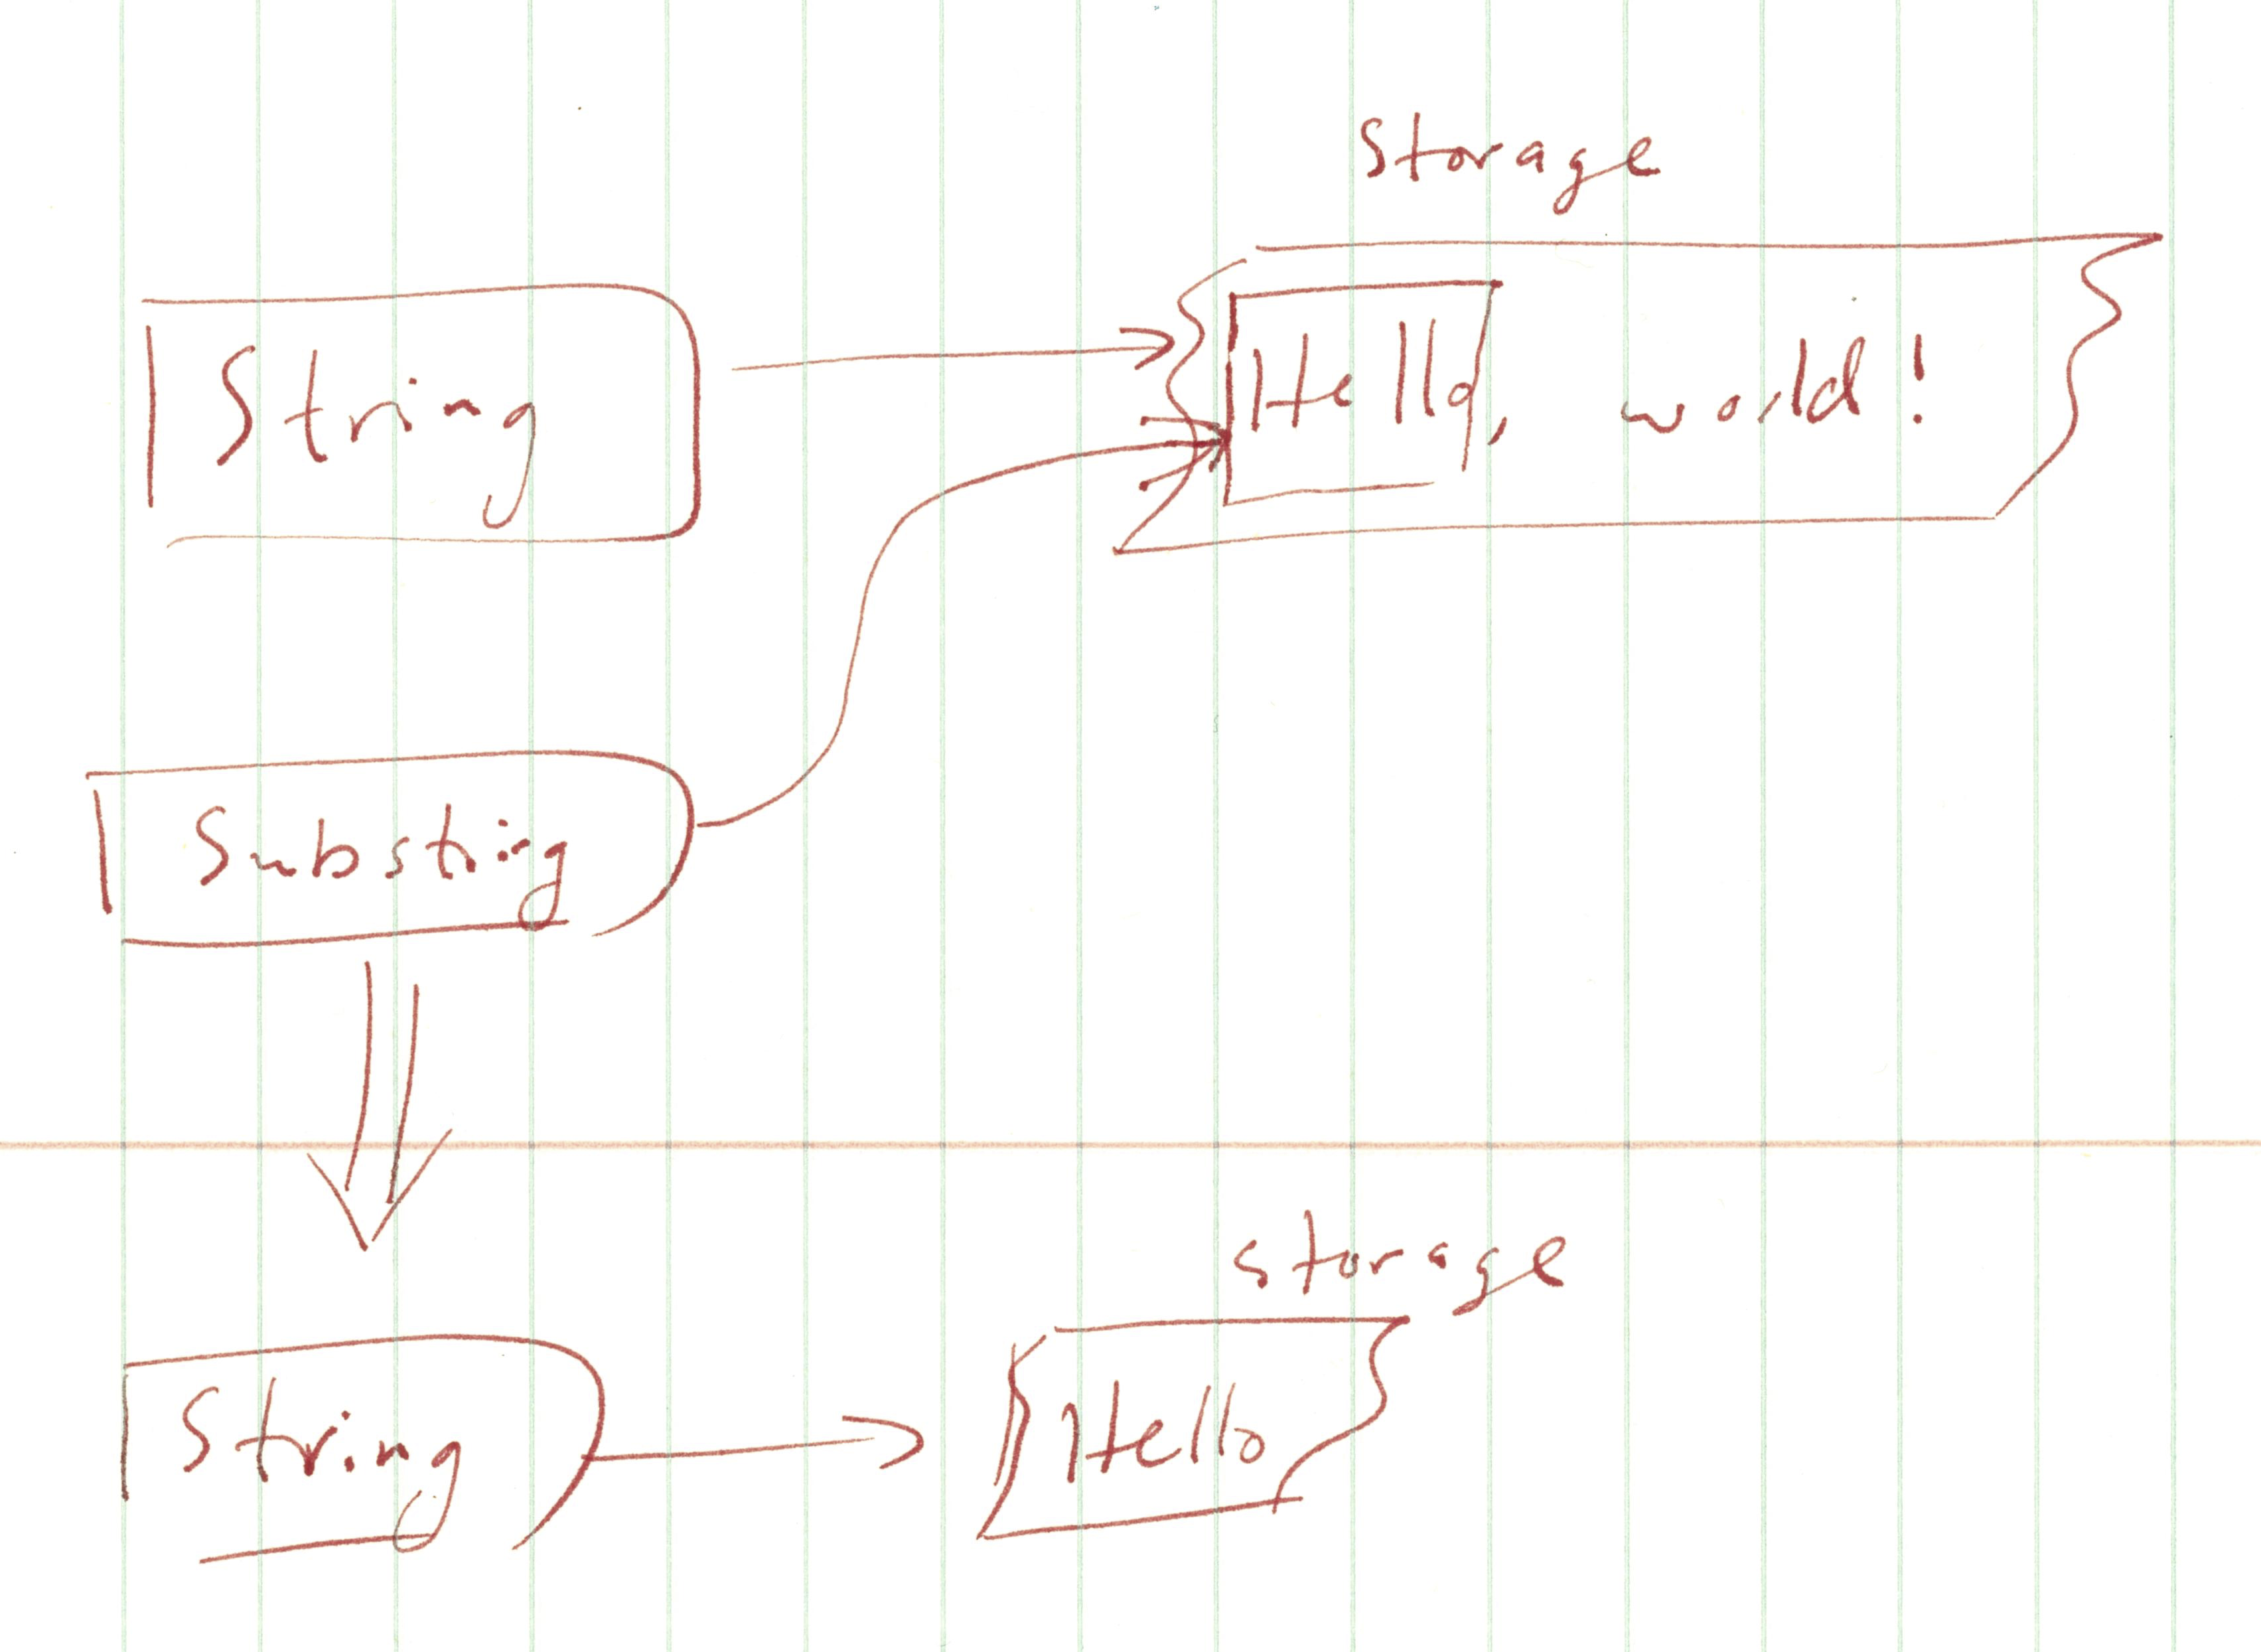 Storage
String
Hello, world!
Substring
storage
String
Hello